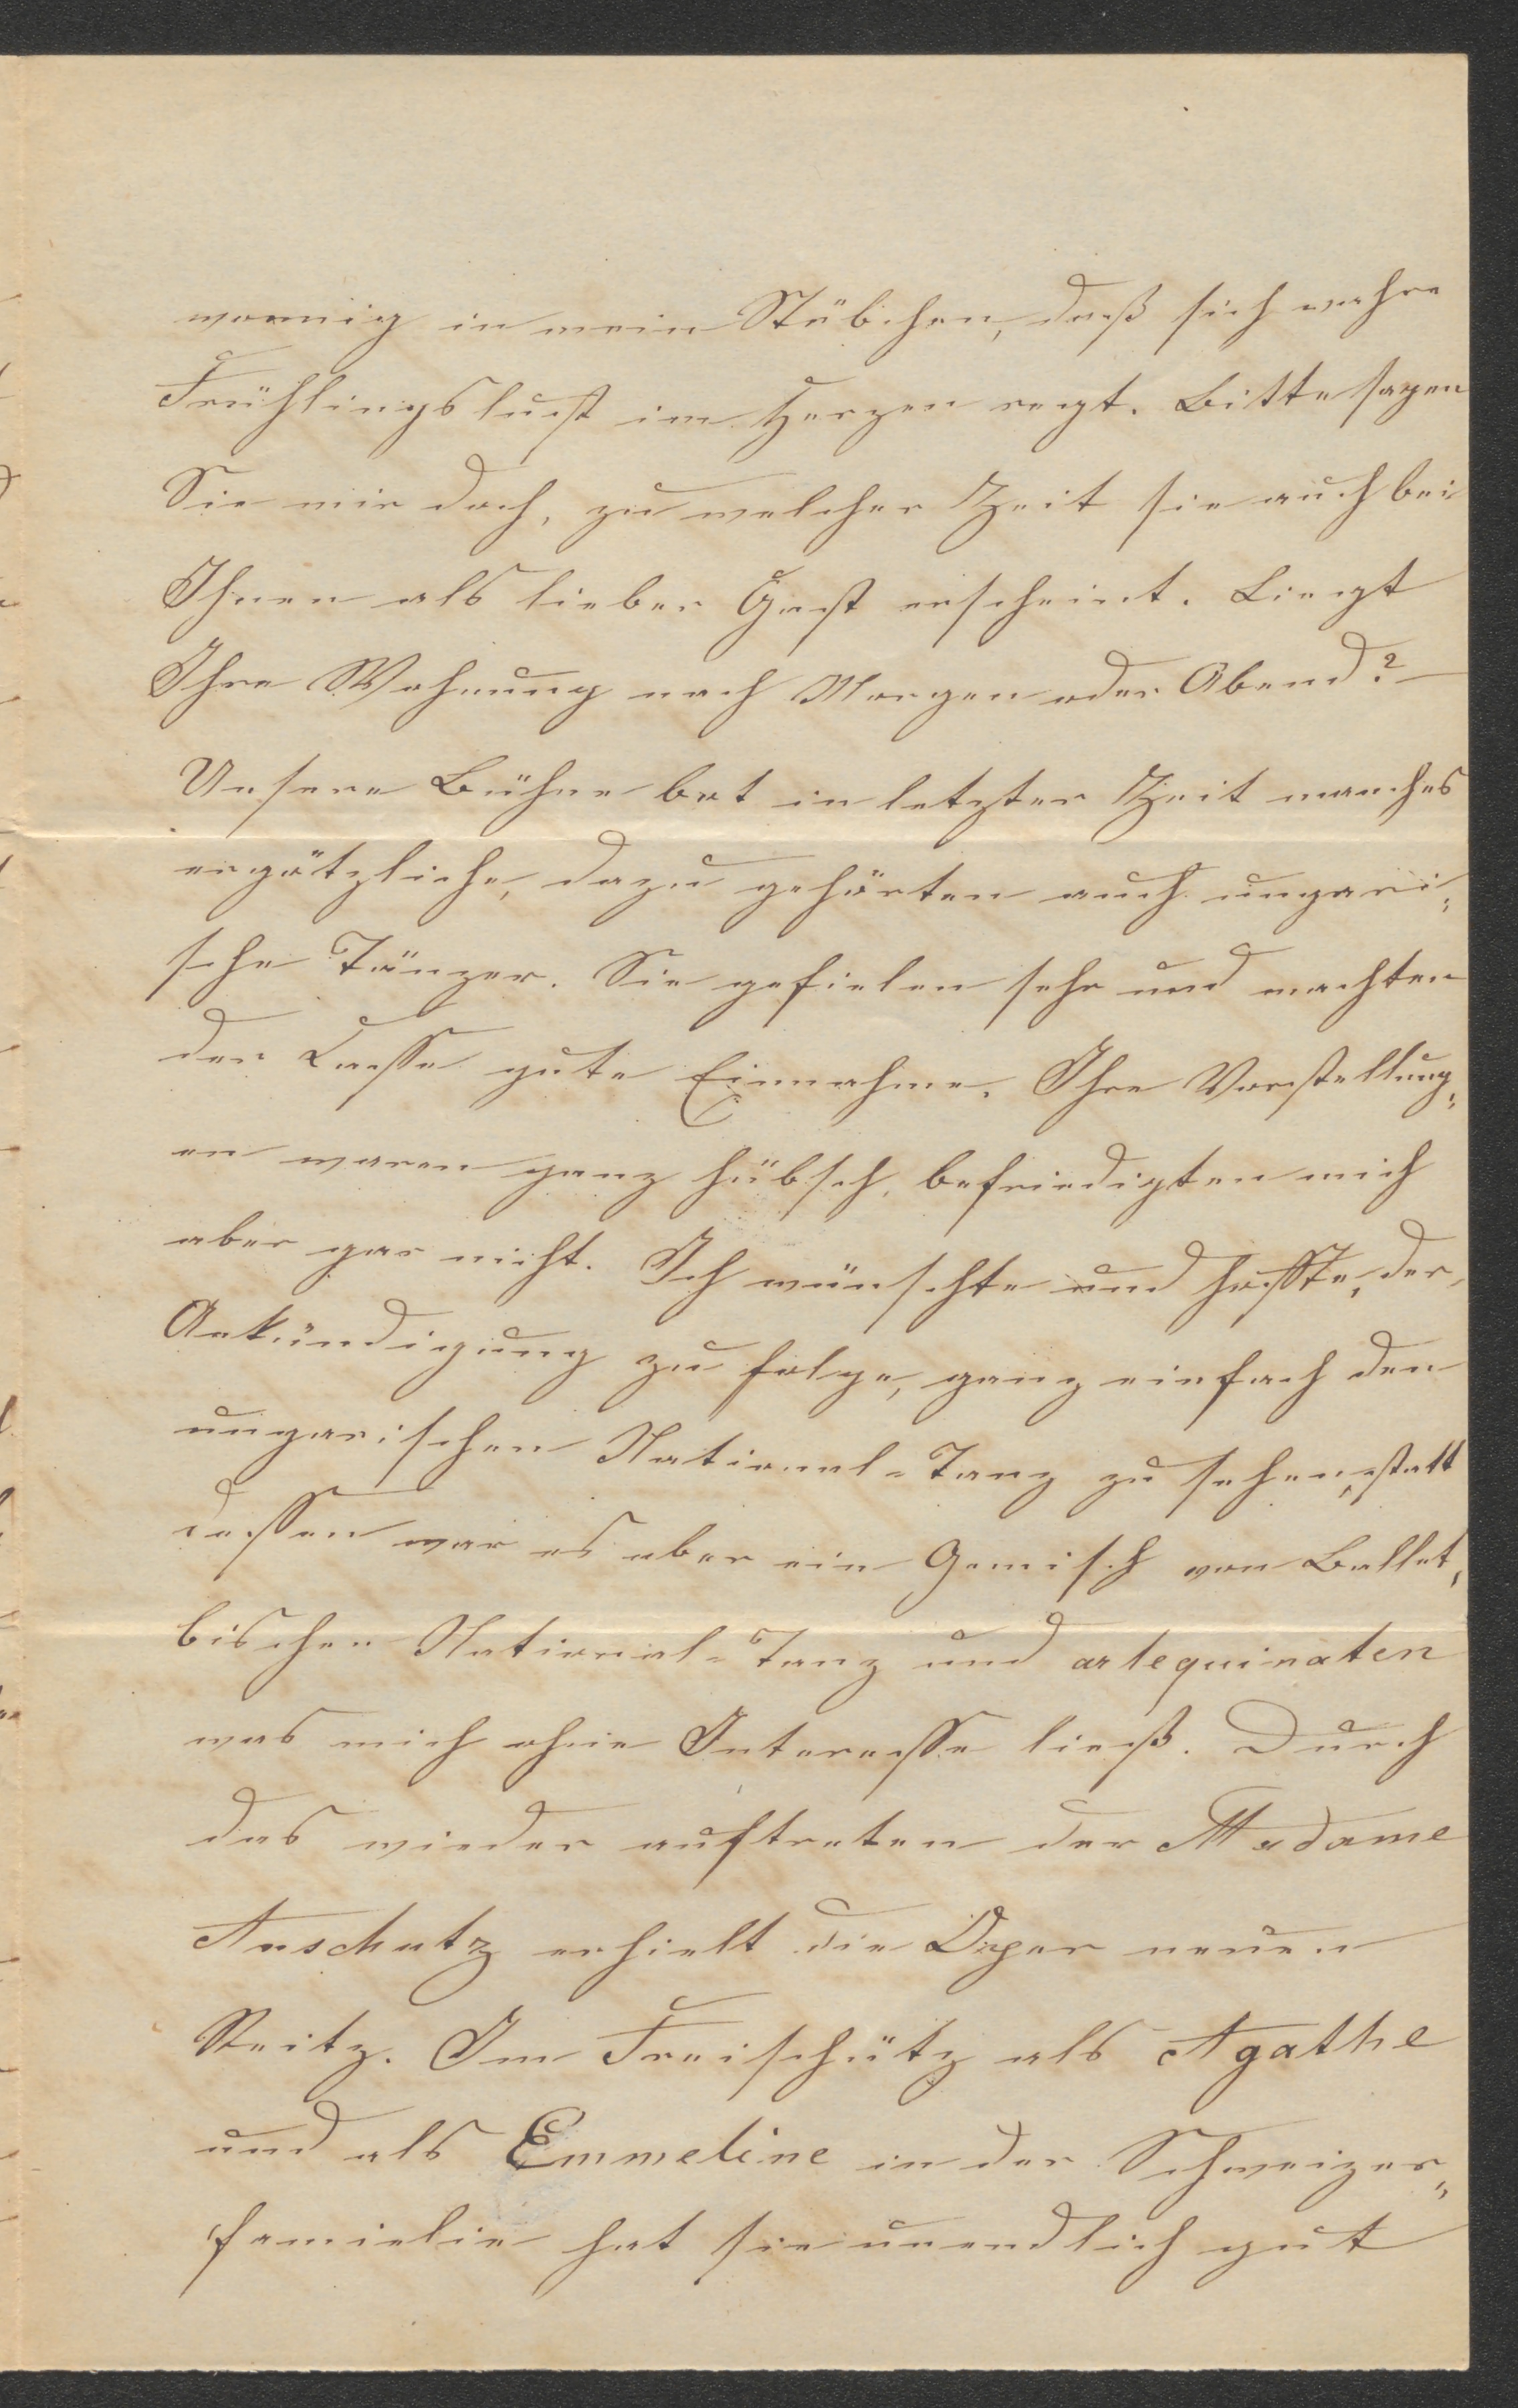 wonnig in mein Stübchen, daß sich wahre
Frühlingslust im Herzen regt. Bitte sagen
Sie mir doch, zu welcher Zeit sie auch bei
Ihnen als lieber Gast erscheint. Liegt
Ihre Wohnung nach Morgen oder Abend? –
Unsere Bühne bot in letzter Zeit manches
ergötzliche, dazu gehörten auch ungari„
sche Tänzer. Sie gefielen sehr und machten
der Casse gute Einnahme. Ihre Vorstellung„
en waren ganz hübsch, befriedigten mich
aber gar nicht. Ich wünschte und hoffte, der
Ankündigung zu folge, ganz einfach den
ungarischen National-Tanz zu sehen, statt
dessen war es aber ein Gemisch von Ballet,
bischen National-Tanz und arlequinaten
was mich ohne Interesse ließ. Durch
das wieder auftreten der Madame
Anschutz erhielt die Oper neuen
Reitz. Im Freischütz als Agathe
und als Emmeline in der Schweizer„
famielie hat sie unendlich gut